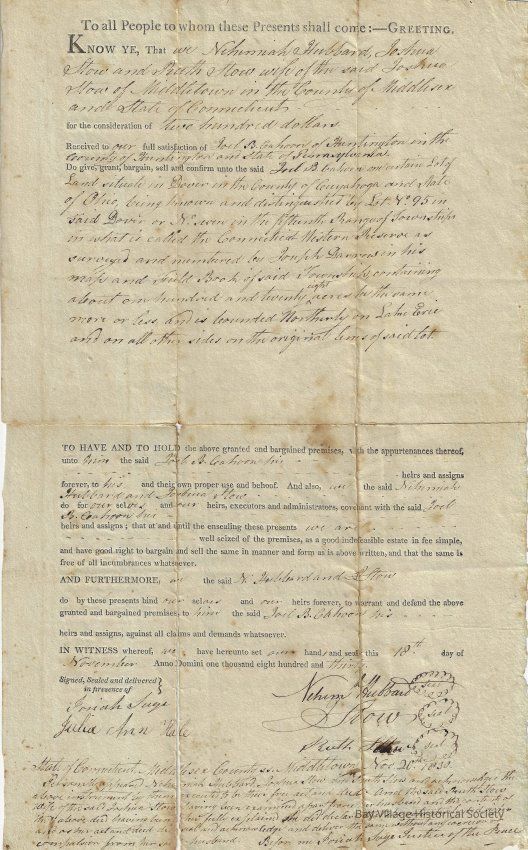 To all People to whom these Presents shall come:—GREETING.
KNOW YE, That we Nehemiah Hubbard, Joshua
Stow and Ruth Stow wife of the said Joshua
Stow of Middletown in the County of Middlesex
and State of Connecticut
for the consideration of two hundred dollars
Received to our full satisfaction of Joel B. Cahoon of Huntington in the
County of Huntington and State of Pennsylvania
Do give, grant, bargain, sell and confirm unto the said Joel B. Cahoon a certain Lot of
Land situate in Dover in the County of Cuyahoga and State
of Ohio, being known and distinguished by Lot No 95 in
said Dover or No. seven in the fifteenth Range of Townships
in what is called the Connecticut Western Reserve as
surveyed and numbered by Joseph Darrow in his
map and Field Book of said Township, containing
about one hundred and twenty eight acres be the same
more or less, and is bounded Northerly on Lake Erie
and on all other sides on the original lines of said lot.
TO HAVE AND TO HOLD the above granted and bargained premises, with the appurtenances thereof,
unto him the said Joel B. Cahoon his
heirs and assigns
forever, to his and their own proper use and behoof. And also, we the said Nehemiah
Hubbard and Joshua Stow
do for our selves and our heirs, executors and administrators, covenant with the said Joel
B. Cahoon his
heirs and assigns; that at and until the ensealing these presents we are
well seized of the premises, as a good indefeasible estate in fee simple,
and have good right to bargain and sell the same in manner and form as is above written, and that the same is
free of all incumbrances whatsoever.
AND FURTHERMORE, we the said N. Hubbard and J. Stow
do by these presents bind our selves and our heirs forever, to warrant and defend the above
granted and bargained premises, to him the said Joel B. Cahoon his
heirs and assigns, against all claims and demands whatsoever.
IN WITNESS whereof, we have hereunto set our hands and seals this 18th day of
November Anno Domini one thousand eight hundred and thirty.
Signed, Sealed and delivered
in presence of
Nehemh Hubbard Seal
J Stow Seal
Julia Ann Hale
Ruth Stow Seal
State of Connecticut, Middlesex County ss. Middletown Nov 20th 1830
Personally appeared Nehemiah Hubbard, Joshua Stow and Ruth Stow and acknowledged the
above instrument to be their free act and deed. And the said Ruth Stow
wife of the said Joshua Stow having been examined apart from her husband and the contents of
the above deed having been fully explained she did declare
Justice of the Peace
Bay Village Historical Society